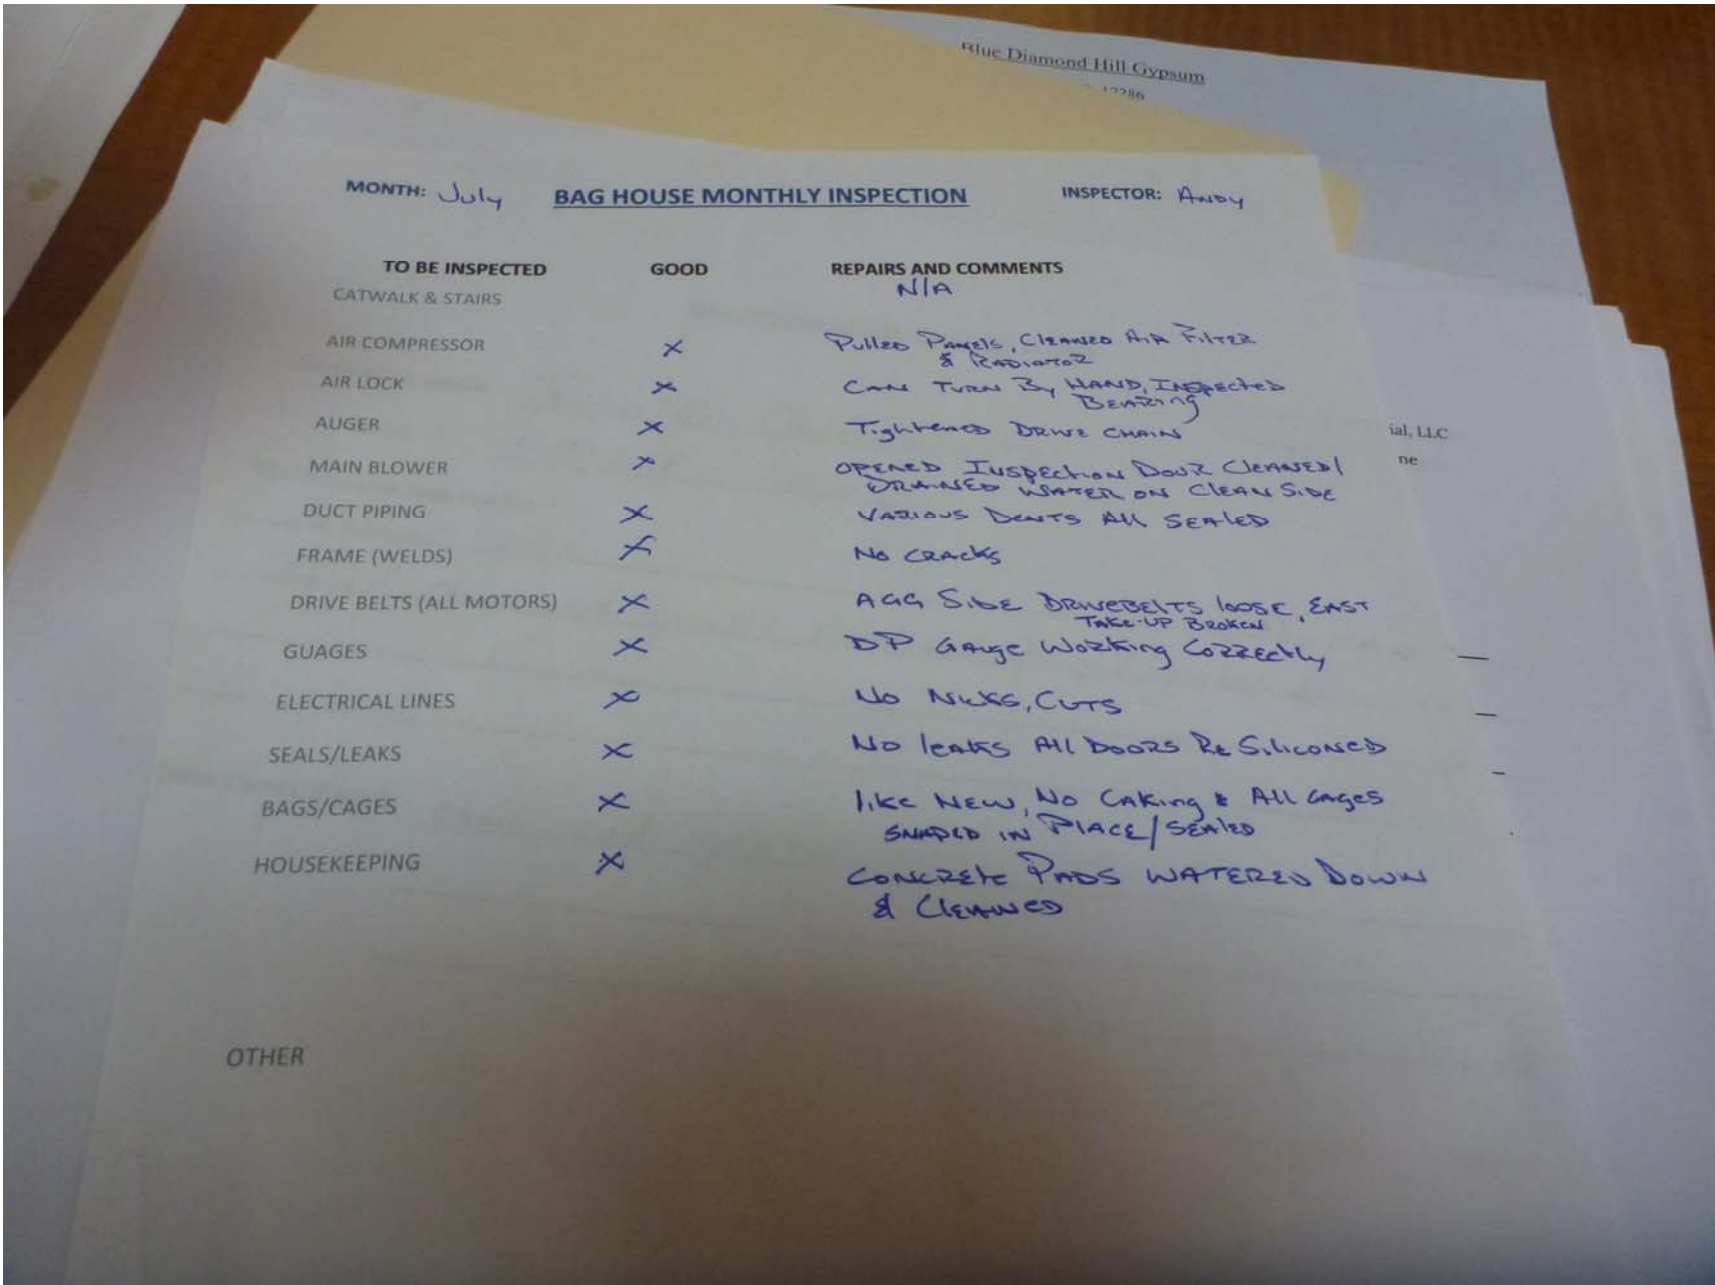 Blue Diamond Hill Gypsum
12286
MONTH: July BAG HOUSE MONTHLY INSPECTION INSPECTOR: ANDY
TO BE INSPECTED GOOD REPAIRS AND COMMENTS
CATWALK & STAIRS N/A
AIR COMPRESSOR X Pulled Panels, Cleaned Air Filter
& Radiator
AIR LOCK X Can Turn By Hand, Inspected
Bearing
AUGER X Tightened Drive Chain
MAIN BLOWER X Opened Inspection Door Cleaned/
Drained Water on Clean Side
DUCT PIPING X Various Dents All Sealed
FRAME (WELDS) X No Cracks
DRIVE BELTS (ALL MOTORS) X AGG Side Drivebelts loose, East
Take-up Broken
GUAGES X DP Gauge Working Correctly
ELECTRICAL LINES X No Nicks, Cuts
SEALS/LEAKS X No leaks All Doors Re Siliconed
BAGS/CAGES X like New, No Caking & All Cages
Snaped in Place/Sealed
HOUSEKEEPING X Concrete Pads Watered Down
& Cleaned
OTHER
ial, LLC
ne